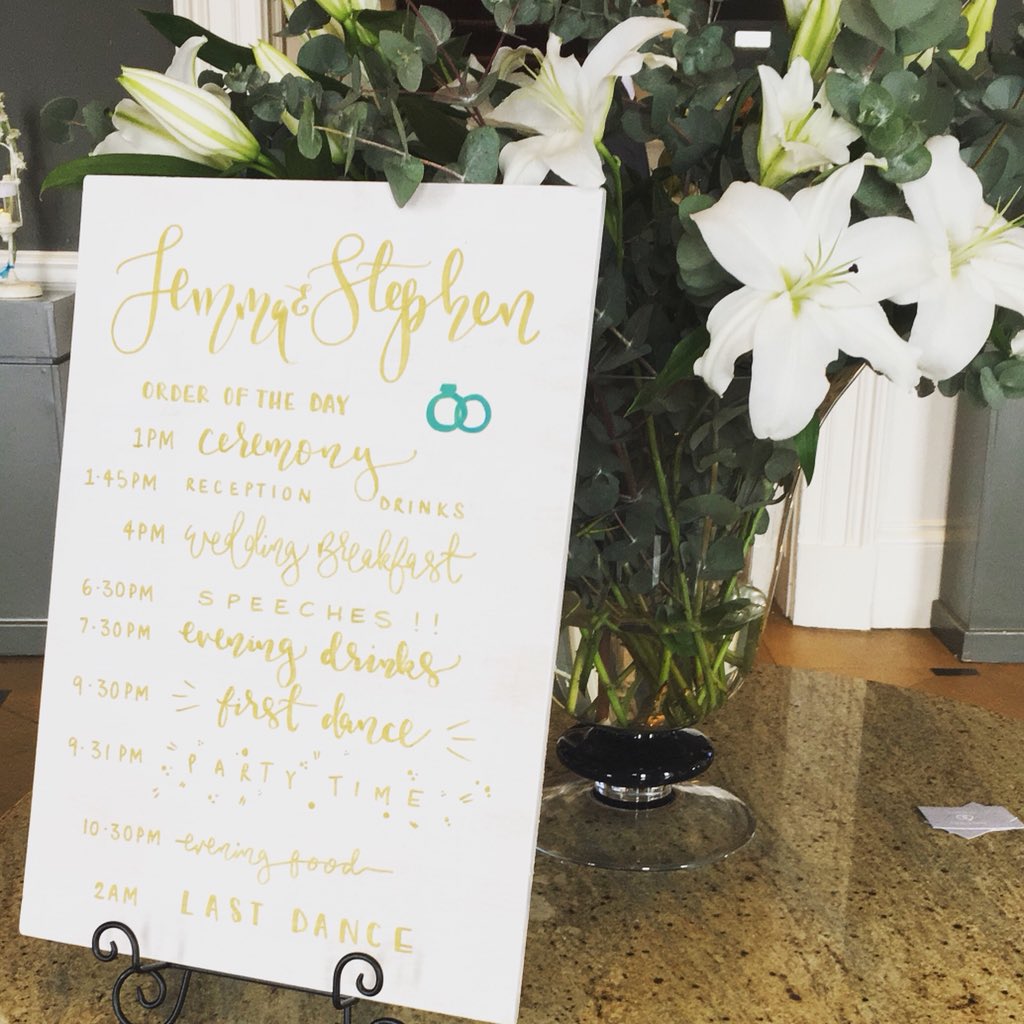 Jemma & Stephen
ORDER OF THE DAY
1PM ceremony
1.45PM RECEPTION DRINKS
4PM wedding Breakfast
6.30PM SPEECHES!!
7.30PM evening drinks
9.30PM first dance
9.31PM "PARTY" TIME
10.30PM evening food
2AM LAST DANCE